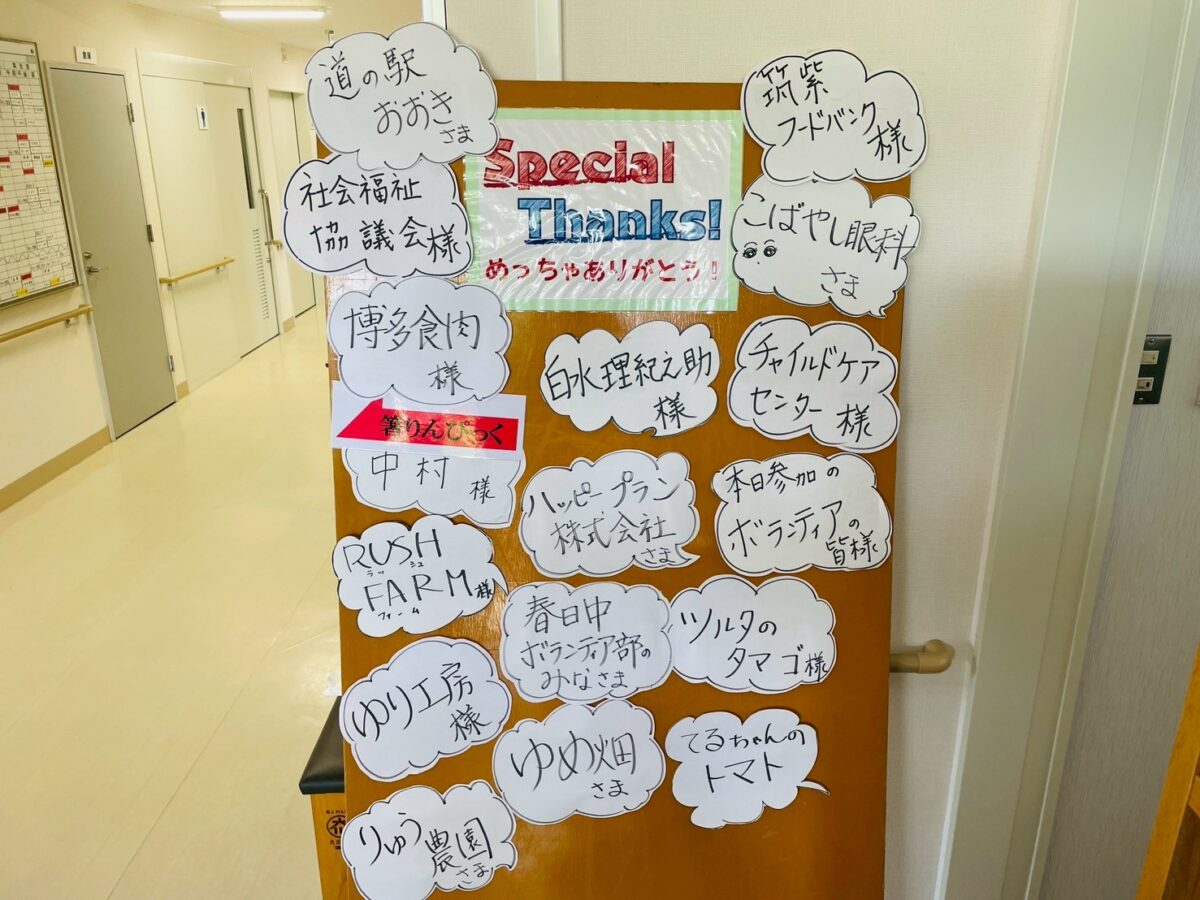 Special
Thanks!
めっちゃありがとう!
道の駅
おおき
さま
社会福祉
協議会様
博多食肉
様
箸りんぴっく
中村 様
RUSH
ラッシュ
FARM様
ファーム
ゆり工房
様
りゅう農園
さま
白水理紀之助
様
ハッピープラン
株式会社
さま
春日中
ボランティア部の
みなさま
ゆめ畑
さま
筑紫
フードバンク
様
こばやし眼科
さま
チャイルドケア
センター様
本日参加の
ボランティアの
皆様
ツルタの
タマゴ様
てるちゃんの
トマト